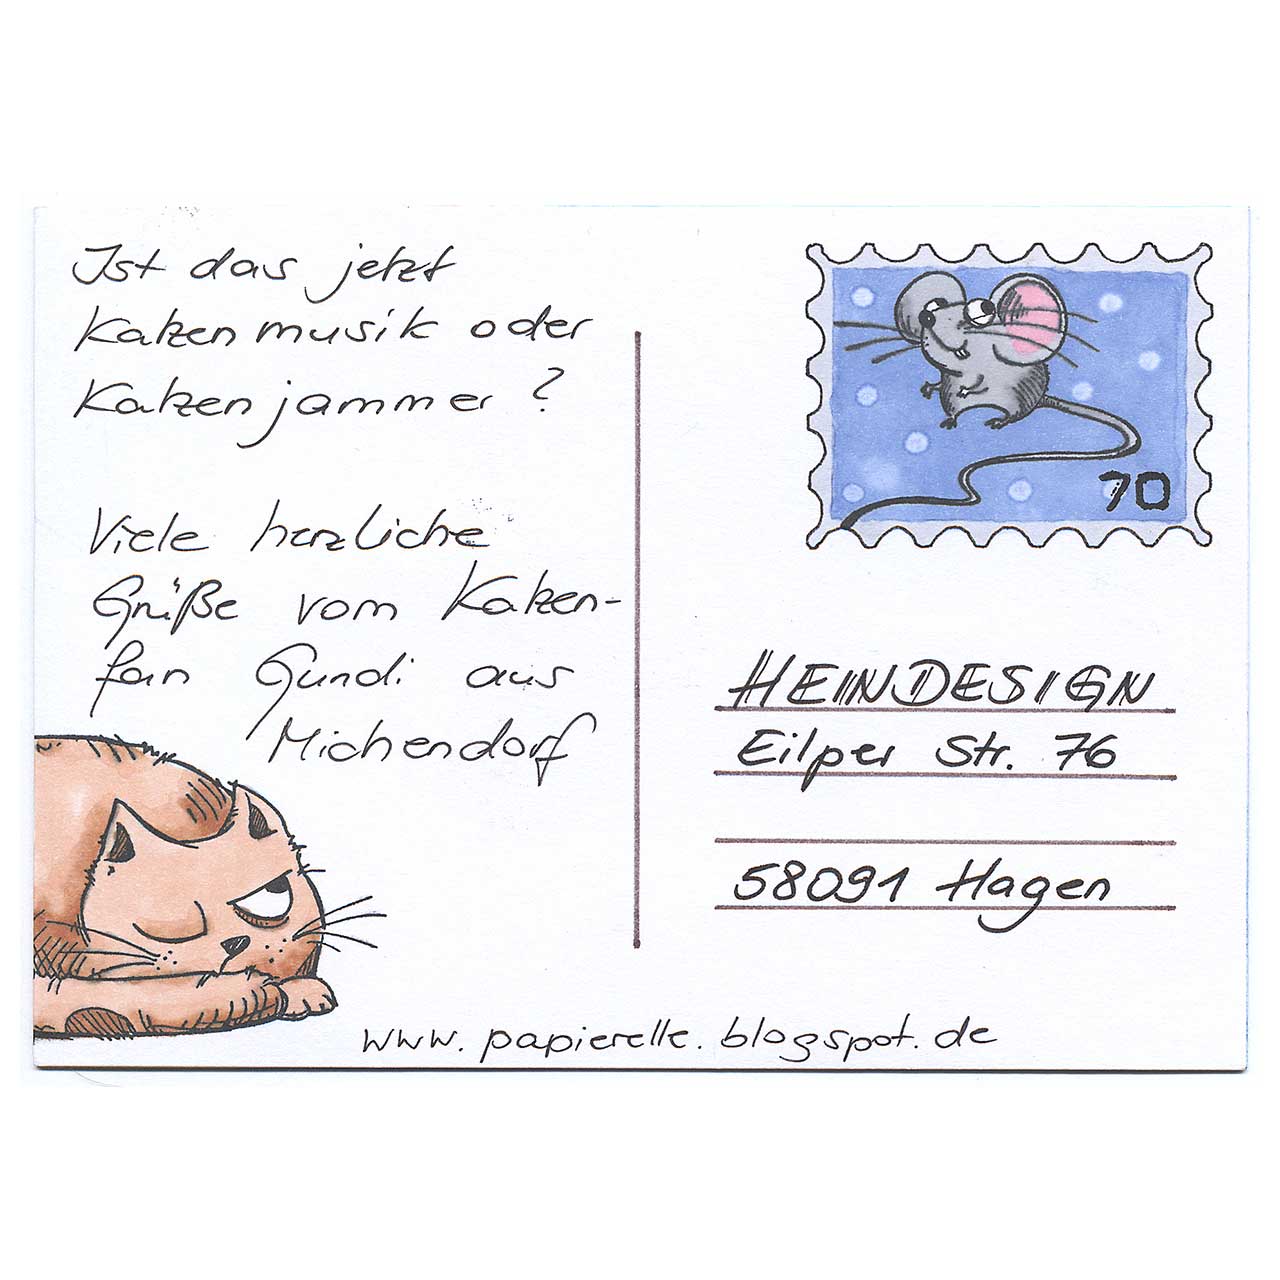 Ist das jetzt
Katzenmusik oder
Katzenjammer?
Viele herzliche
Grüße vom Katzen-
fan Gundi aus
Michendorf
70
HEINDESIGN
Eilper Str. 76
58091 Hagen
www.papierelle.blogspot.de